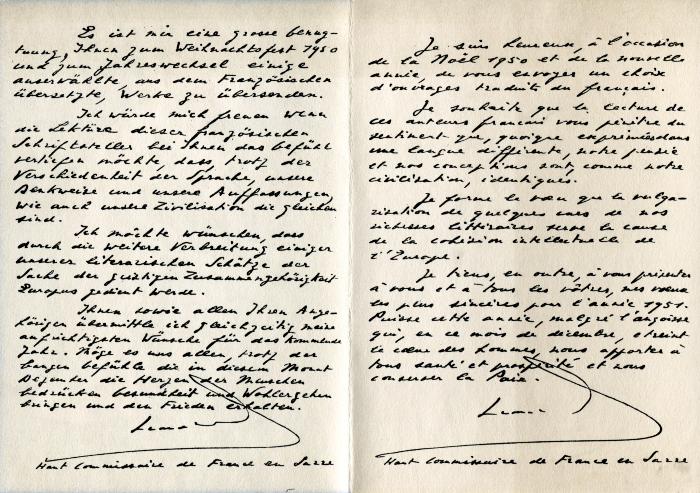 Es ist mir eine grosse Genug-
tuung, Ihnen zum Weihnachtsfest 1950
und zum Jahreswechsel einige
auserwählte, aus dem Französischen
übersetzte, Werke zu übersenden.
Ich würde mich freuen wenn
die Lektüre dieser französischen
Schriftsteller bei Ihnen das Gefühl
vertiefen möchte, dass, trotz der
Verschiedenheit der Sprache, unsere
Denkweise und unsere Auffassungen,
wie auch unsere Zivilisation die gleichen
sind.
Ich möchte wünschen, dass
durch die weitere Verbreitung einiger
unserer literarischen Schätze der
Sache der geistigen Zusammengehörigkeit
Europas gedient werde.
Ihnen sowie allen Ihren Ange-
hörigen übermittle ich gleichzeitig meine
aufrichtigsten Wünsche für das kommende
Jahr. Möge es uns allen, trotz der
bangen Gefühle die in diesem Monat
Dezember die Herzen der Menschen
bedrücken Gesundheit und Wohlergehen
bringen und den Frieden erhalten.
Haut Commissaire de France en Sarre
Je suis heureux, à l'occasion
de la Noël 1950 et de la nouvelle
année, de vous envoyer un choix
d'ouvrages traduits du français.
Je souhaite que la lecture de
ces auteurs français vous pénètre du
sentiment que, quoique exprimées dans
une langue différente, notre pensée
et nos conceptions sont, comme notre
civilisation, identiques.
Je forme le vœu que la vulga-
risation de quelques unes de nos
richesses littéraires serve la cause
de la cohésion intellectuelle de
l'Europe.
Je tiens, en outre, à vous présenter
à vous et à tous les vôtres, mes vœux
les plus sincères pour l'année 1951.
Puisse cette année, malgré l'angoisse
qui, en ce mois de décembre, étreint
le cœur des hommes, nous apporter à
tous santé et prospérité et nous
conserver la Paix.
Haut Commissaire de France en Sarre